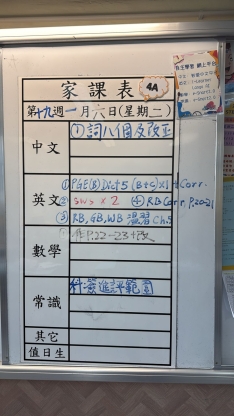 家課表 4A
第十九週一月六日(星期二)
中文 ①詞八個及改正
英文 ①PGE(B) Dict 5 (B+C)x1+Corr.
② SWS x 2 ④ RB Corr. P.20-21
③ RB, GB, WB 溫習 Ch.5
數學 作P.22-23+改
常識 科學進評範圍
其它
值日生
自主學習 網上平台